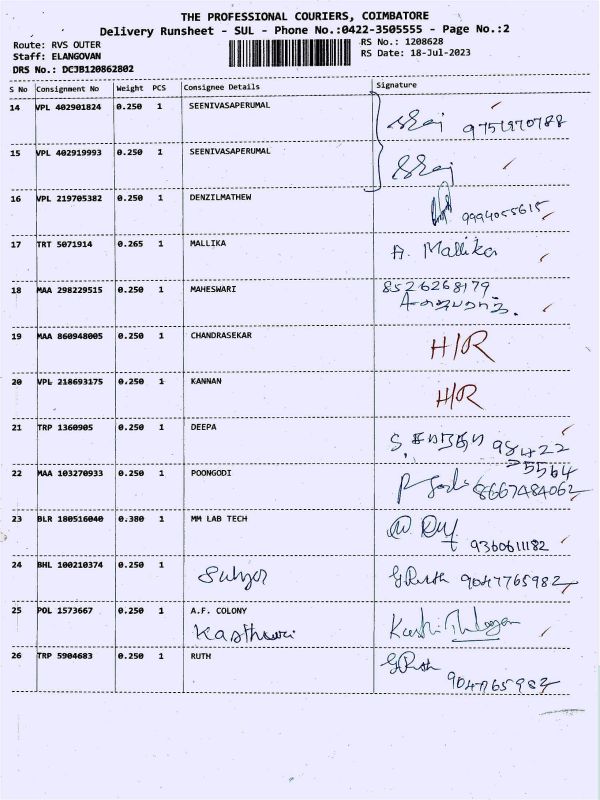 THE PROFESSIONAL COURIERS, COIMBATORE
Delivery Runsheet - SUL - Phone No.:0422-3505555 - Page No.:2
Route: RVS OUTER RS No.: 1208628
Staff: ELANGOVAN RS Date: 18-Jul-2023
DRS No.: DCJB120862802
S No Consignment No Weight PCS Consignee Details Signature
14 VPL 402901824 0.250 1 SEENIVASAPERUMAL
15 VPL 402919993 0.250 1 SEENIVASAPERUMAL
16 VPL 219705382 0.250 1 DENZILMATHEW 9994055615
17 TRT 5071914 0.265 1 MALLIKA A. Mallika
18 MAA 298229515 0.250 1 MAHESWARI 8526268179
19 MAA 860948005 0.250 1 CHANDRASEKAR H/R
20 VPL 218693175 0.250 1 KANNAN H/R
21 TRP 1360905 0.250 1 DEEPA 98422
5564
22 MAA 103270933 0.250 1 POONGODI 8667484062
23 BLR 180516040 0.380 1 MM LAB TECH 9360611182
24 BHL 100210374 0.250 1 G Ruth 9047765982
25 POL 1573667 0.250 1 A.F. COLONY
Kasthuri
26 TRP 5904683 0.250 1 RUTH G Ruth
9047765982